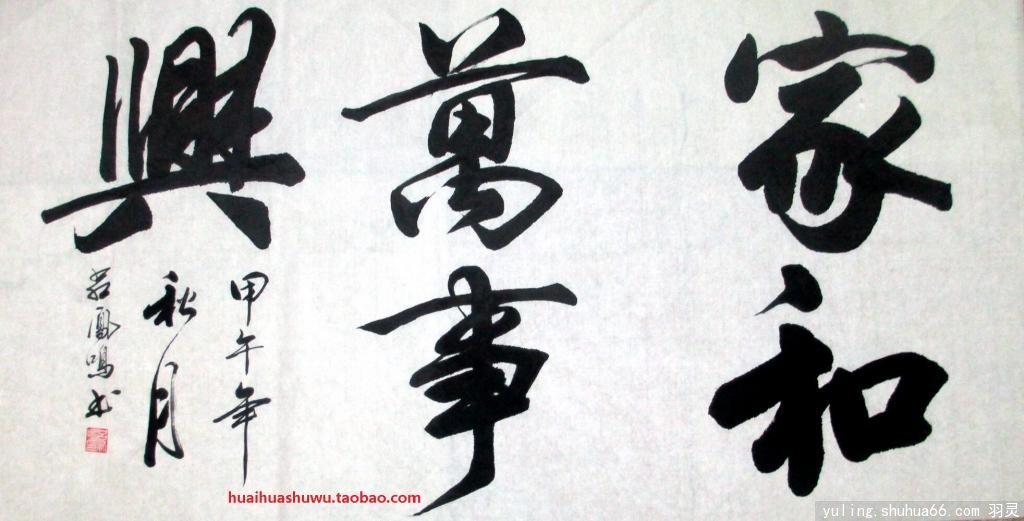 家和
萬事
興
甲午年
秋月
鳳鳴书
huaihuashuwu.taobao.com
yuling.shuhua66.com 羽灵